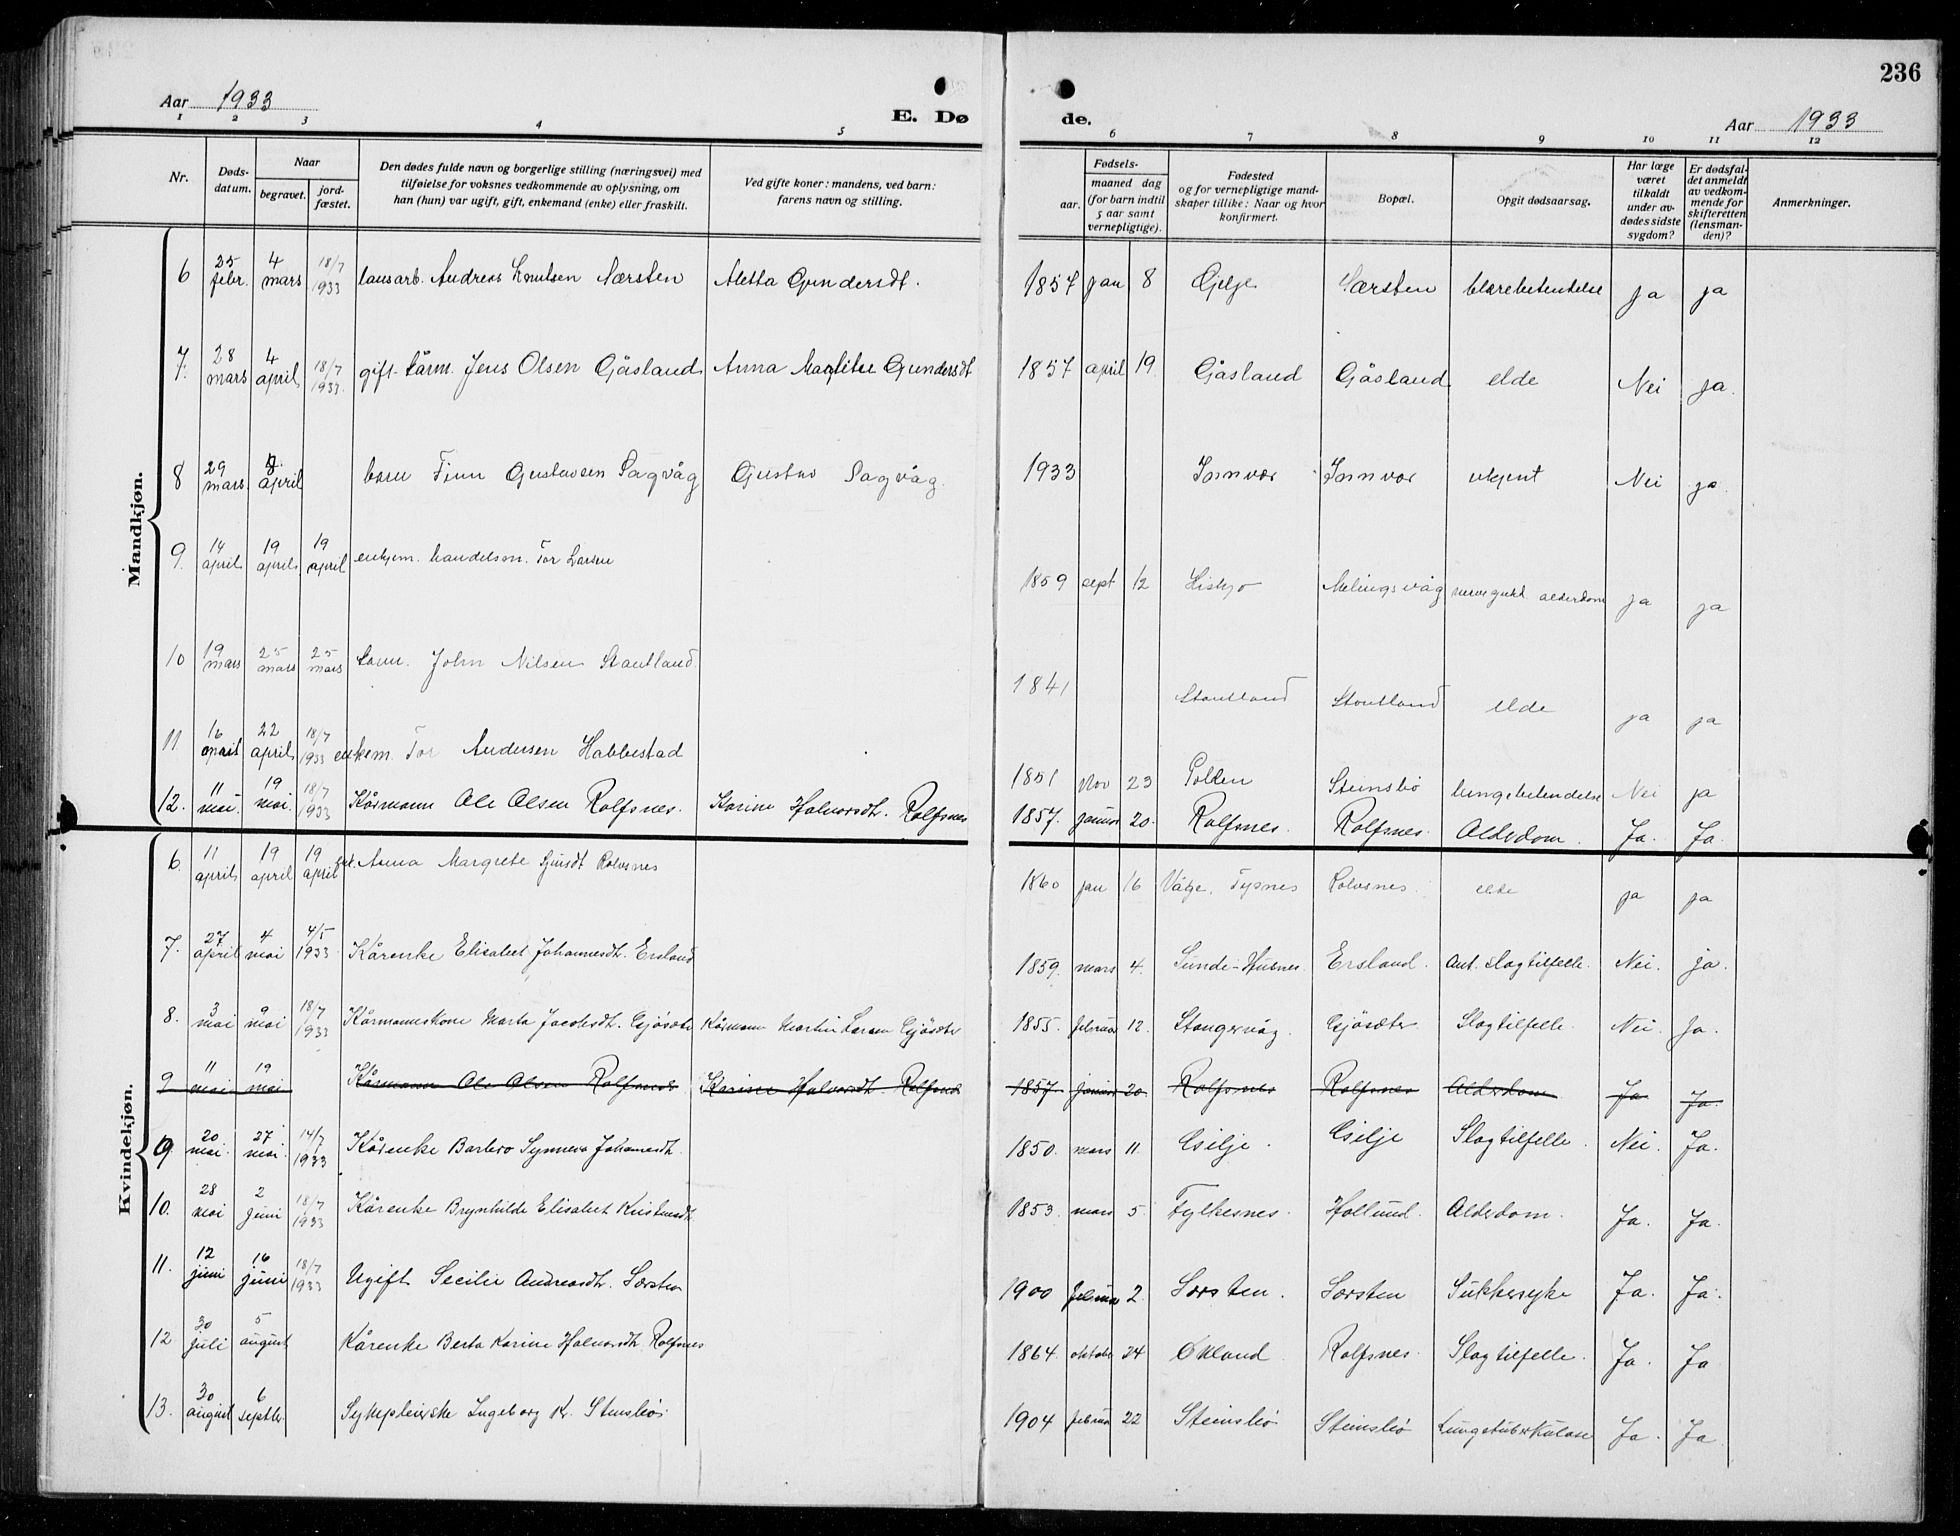 236
Aar 1933
E. Dø
de.
Aar 1933
1 2 3 4 5 6 7 8 9 10 11 12
Nr.
Døds-
datum.
Naar
begravet.
jord-
fæstet.
Den dødes fulde navn og borgerlige stilling (næringsvei) med
tilføielse for voksnes vedkommende av oplysning, om
han (hun) var ugift, gift, enkemand (enke) eller fraskilt.
Ved gifte koner: mandens, ved barn:
farens navn og stilling.
Fødsels-
aar.
maaned dag
(for barn indtil
5 aar samt
vernepligtige).
Fødested
og for vernepligtige mand-
skaper tillike: Naar og hvor
konfirmert.
Bopæl.
Opgit dødsaarsag.
Har læge
været
tilkaldt
under av-
dødes sidste
sygdom?
Er dødsfal-
det anmeldt
av vedkom-
mende for
skifteretten
(lensman-
den)?
Anmerkninger.
Mandkjøn.
6 25 febr. 4 mars 18/7 1933 lausarb. Andreas Knutsen Særsten Aletta Gundersdt. 1857 jan 8 Gjelje Særsten blærebetendelse ja ja
7. 28 mars 4 april 18/7 1933. gift kårm. Jens Olsen Gåsland Anna Gundersdt 1857 april 19. Gåsland Gåsland elde Nei ja.
8 29 mars 8 april barn Finn Gustavsen Sagvåg Gustav Sagvåg. 1933 Innvær Innvær ukjent Nei ja.
9. 14 april 19 april 19 april enkjem. handelsm. Tor Larsen 1859 sept 12 Hiskjo Melingsvåg alderdom ja ja
10 19 mars 25 mars 25 mars kårm. John Nilsen Stautland 1841 Stautland Stautland elde ja ja
11 16 april 22 april 18/7 1933 enkem. Tor Andersen Habbestad 1851 Nov 23 Polden Steinsbø lungebetendelse Nei ja
12. 11 mai. 19 mai. 18/7 1933 Kårmann Ole Olsen Rolfsnes. Karine Halvorsdt. Rolfsnes 1857. januar 20. Rolfsnes. Rolfsnes. Alderdom. Ja. Ja.
Kvindekjøn.
6. 11 april 19 april 19 april Anna Margrete Rolvsnes 1860 jan 16 Våge, Tysnes Rolvsnes. elde ja ja
7. 27 april 4 mai 4/5 1933 Kårenke Elisabet Johannesdt. Ersland 1859. mars 4. Sunde-Husnes. Ersland. Ant. slagtilfelle. Nei. ja.
8. 3 mai 9 mai 18/7 1933 Kårmannskone Marta Jacobsdt. Gjøsæter Kårmann Martin Larsen Gjøsæter 1855. februar 12. Stangervåg. Gjøsæter Slagtilfelle. Nei. Ja.
9 11 mai 19 mai Kårmann Ole Olsen Rolfsnes Karine Halvorsdt. Rolfsnes 1857 januar 20 Rolfsnes Rolfsnes Alderdom Ja Ja.
9 20 mai. 27 mai. 14/7 1933 Kårenke Barbro Synneva Johannesdt. 1850. mars 11. Gjilje. Gjilje Slagtilfelle. Nei. Ja.
10. 28 mai 2 juni 18/7 1933 Kårenke Brynhilde Elisabet Kristensdt 1853. mars 5. Fylkesnes. Hollund. Alderdom. Ja. Ja.
11. 12 juni 16 juni 18/7 1933 Ugift Secilie Andreasdt. Særsten 1900 februar 2. Særsten. Særsten Sukkersyke Ja. Ja.
12 30 juli 5 august Kårenke Berta Karine Halvorsdt. Rolfsnes 1864. oktober 24 Økland. Rolfsnes. Slagtilfelle. Ja. Ja
13. 30 august 6 septbr. Sykepleierske Ingeborg K. Steinsbø. 1904 februar 22 Steinsbø Steinsbø Lungetuberkulose Ja. Ja.